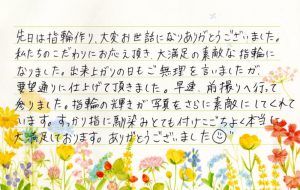 先日は指輪作り、大変お世話になりありがとうございました。
私たちのこだわりにお応え頂き、大満足の素敵な指輪に
なりました。出来上がりの日もご無理を言いましたが、
要望通りに仕上げて頂きました。早速、前撮りへ行って
参りました。指輪の輝きが写真をさらに素敵にしてくれて
います。すっかり指に馴染みとても付けごこちよく本当に
大満足しております。ありがとうございました